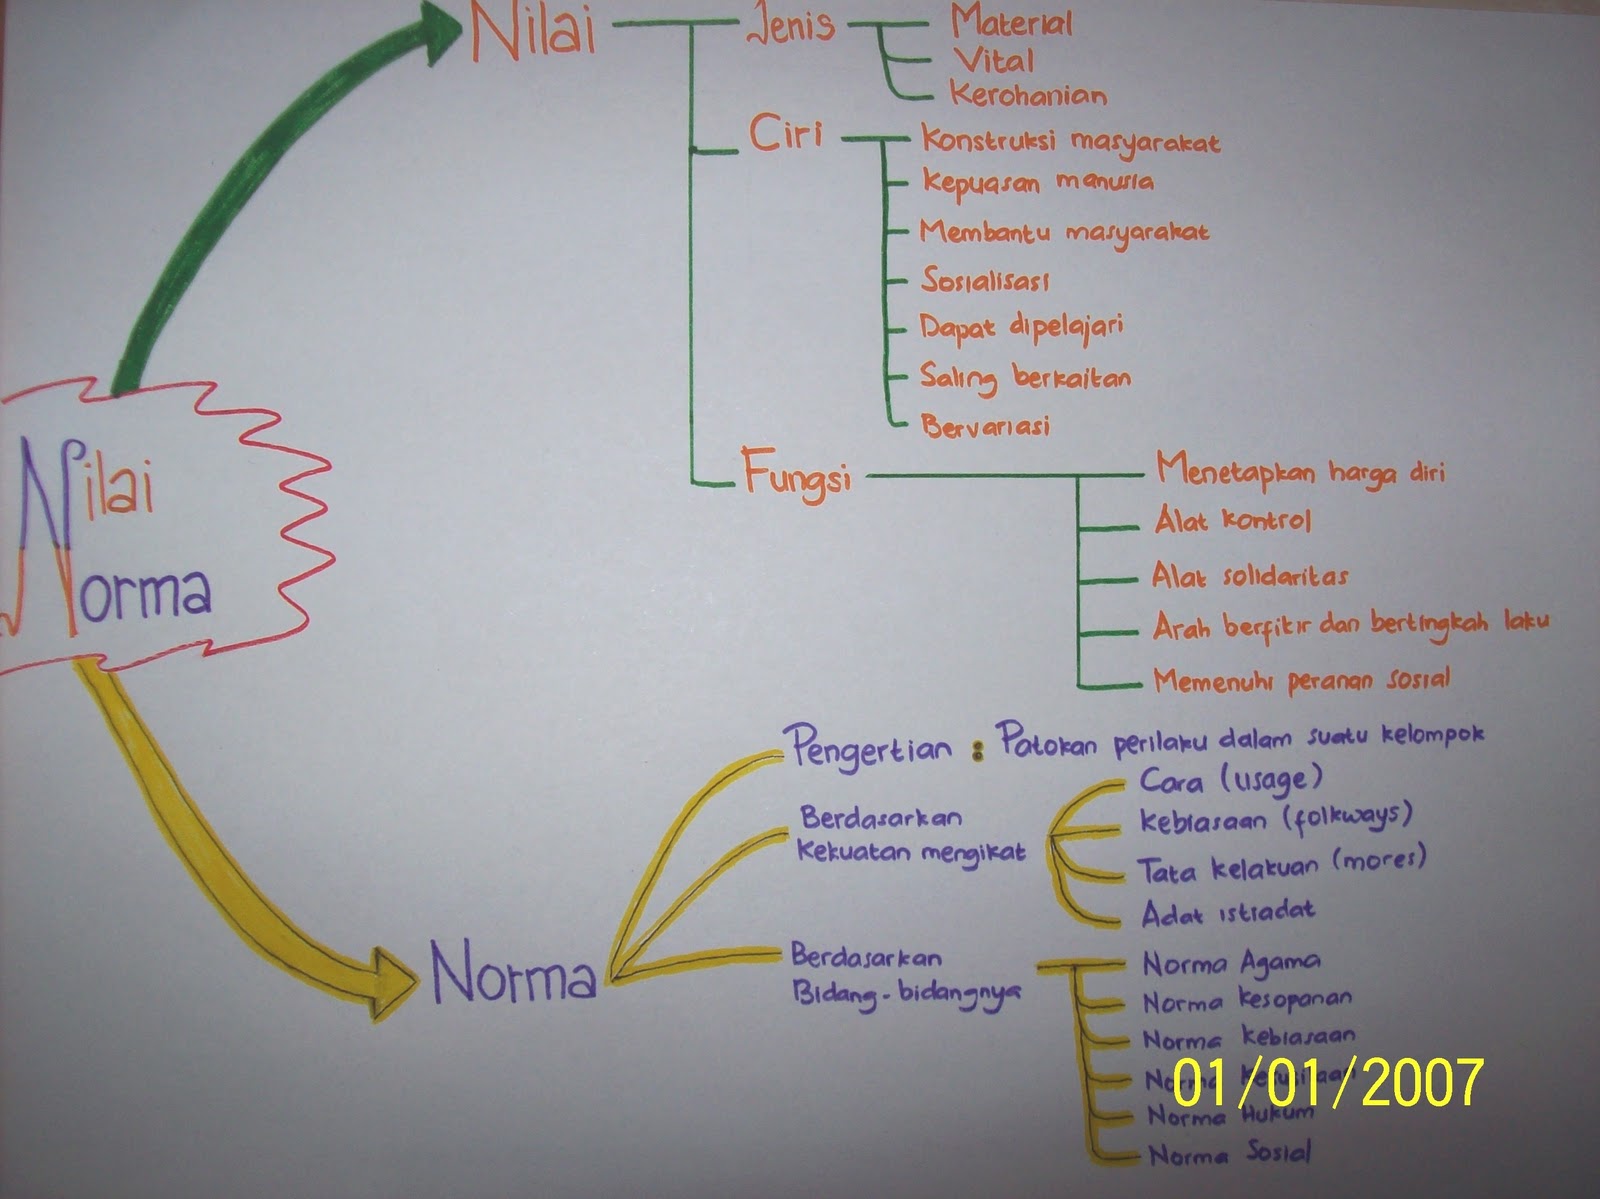 Nilai
Norma
Nilai
Jenis
Material
Vital
Kerohanian
Ciri
Konstruksi masyarakat
Kepuasan manusia
Membantu masyarakat
Sosialisasi
Dapat dipelajari
Saling berkaitan
Bervariasi
Fungsi
Menetapkan harga diri
Alat kontrol
Alat solidaritas
Arah berfikir dan bertingkah laku
Memenuhi peranan sosial
Norma
Pengertian : Patokan perilaku dalam suatu kelompok
Berdasarkan
Kekuatan mengikat
Cara (usage)
Kebiasaan (folkways)
Tata kelakuan (mores)
Adat istiadat
Berdasarkan
Bidang-bidangnya
Norma Agama
Norma Kesopanan
Norma Kebiasaan
Norma
Norma Hukum
Norma Sosial
01/01/2007